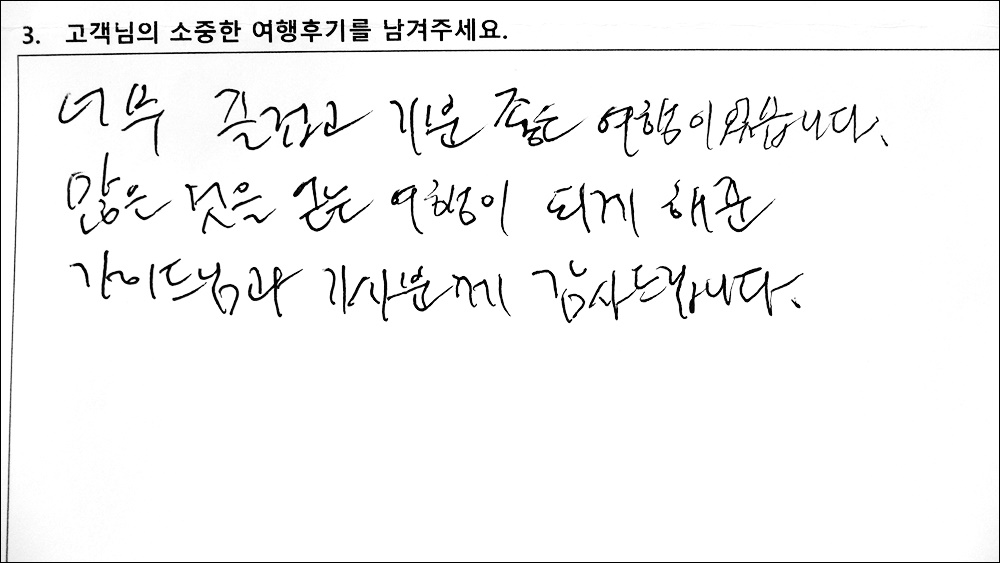 3. 고객님의 소중한 여행후기를 남겨주세요.
너무 즐겁고 기분 좋은 여행이였습니다.
많은 것을 얻는 여행이 되게 해준
가이드님과 기사분께 감사드립니다.